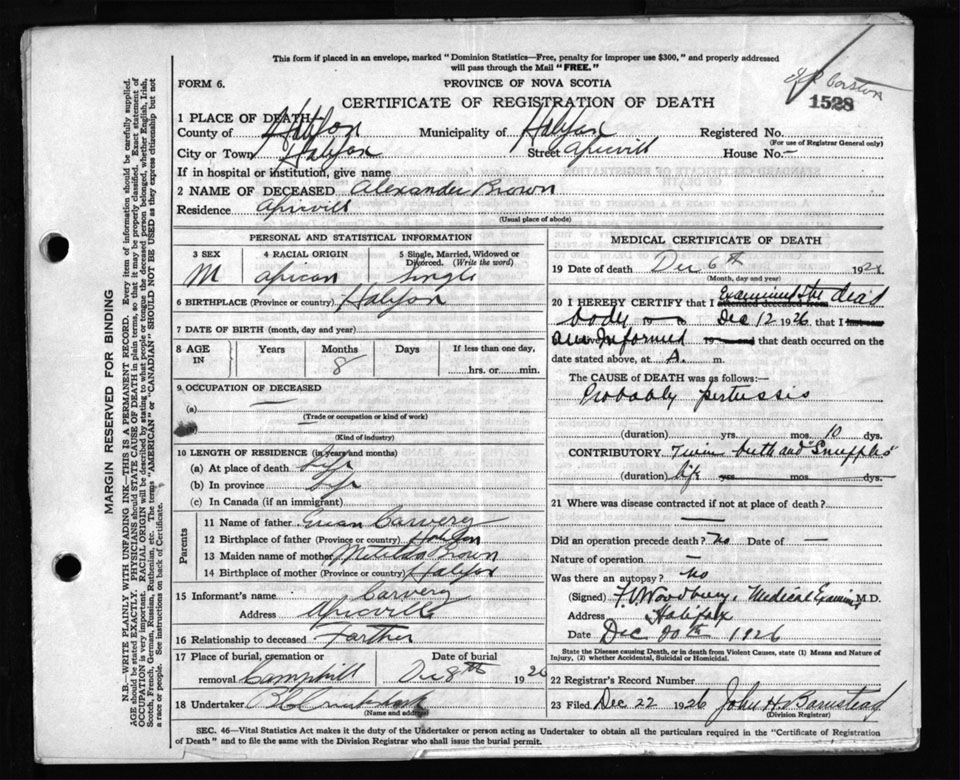 This form if placed in an envelope, marked "Dominion Statistics—Free, penalty for improper use $300," and properly addressed
will pass through the Mail "FREE."
FORM 6.
PROVINCE OF NOVA SCOTIA
CERTIFICATE OF REGISTRATION OF DEATH
1528
1 PLACE OF DEATH—
County of Halifax Municipality of Halifax Registered No.
(For use of Registrar General only)
City or Town Halifax Street Africvill House No.—
If in hospital or institution, give name
2 NAME OF DECEASED Alexander Brown
Residence Africvill
(Usual place of abode)
PERSONAL AND STATISTICAL INFORMATION
3 SEX 4 RACIAL ORIGIN 5 Single, Married, Widowed or Divorced. (Write the word)
M African Single
6 BIRTHPLACE (Province or country) Halifax
7 DATE OF BIRTH (month, day and year)
8 AGE IN Years Months Days If less than one day,
8 ....hrs. or......min.
9. OCCUPATION OF DECEASED
(a) —
(Trade or occupation or kind of work)
(Kind of industry)
10 LENGTH OF RESIDENCE (in years and months)
(a) At place of death Life
(b) In province Life
(c) In Canada (if an immigrant)
Parents
11 Name of father Carvery
12 Birthplace of father (Province or country) Halifax
13 Maiden name of mother Matilda Brown
14 Birthplace of mother (Province or country) Halifax
15 Informant's name Carvery
Address Africville
16 Relationship to deceased Farther
17 Place of burial, cremation or removal Date of burial
Camphill Dec 8th 1926
18 Undertaker
(Name and address)
MEDICAL CERTIFICATE OF DEATH
19 Date of death Dec 6th 192
(Month, day and year)
20 I HEREBY CERTIFY that I attended deceased from Examined the dead
body to Dec 12 1926, that I last saw
am Informed 19 and that death occurred on the
date stated above, at A. m.
The CAUSE of DEATH was as follows:—
Probably pertussis
(duration) yrs. mos. 10 dys.
CONTRIBUTORY Twin birth and "Snuffles"
(duration) life yrs mos dys.
21 Where was disease contracted if not at place of death?
—
Did an operation precede death? No Date of —
Nature of operation —
Was there an autopsy? No
(Signed) Woodbury, Medical Examiner M.D.
Address Halifax
Date Dec 20th 1926
State the Disease causing Death, or in death from Violent Causes, state (1) Means and Nature of
Injury, (2) whether Accidental, Suicidal or Homicidal.
22 Registrar's Record Number
23 Filed Dec 22 1926 John H Barnstead
(Division Registrar)
SEC. 46—Vital Statistics Act makes it the duty of the Undertaker or person acting as Undertaker to obtain all the particulars required in the "Certificate of Registration
of Death" and to file the same with the Division Registrar who shall issue the burial permit.
MARGIN RESERVED FOR BINDING
N.B.—WRITE PLAINLY WITH UNFADING INK—THIS IS A PERMANENT RECORD. Every item of information should be carefully supplied.
AGE should be stated EXACTLY. PHYSICIANS should STATE CAUSE OF DEATH in plain terms, so that it may be properly classified. Exact statement of
OCCUPATION is very important. RACIAL ORIGIN will be described by stating to what people or tongue the deceased person belonged, whether English, Irish,
Scotch, French, German, Russian, Ruthenian, etc. The terms "AMERICAN" or "CANADIAN" SHOULD NOT BE USED as they express citizenship but not
a race or people. See instructions on back of Certificate.